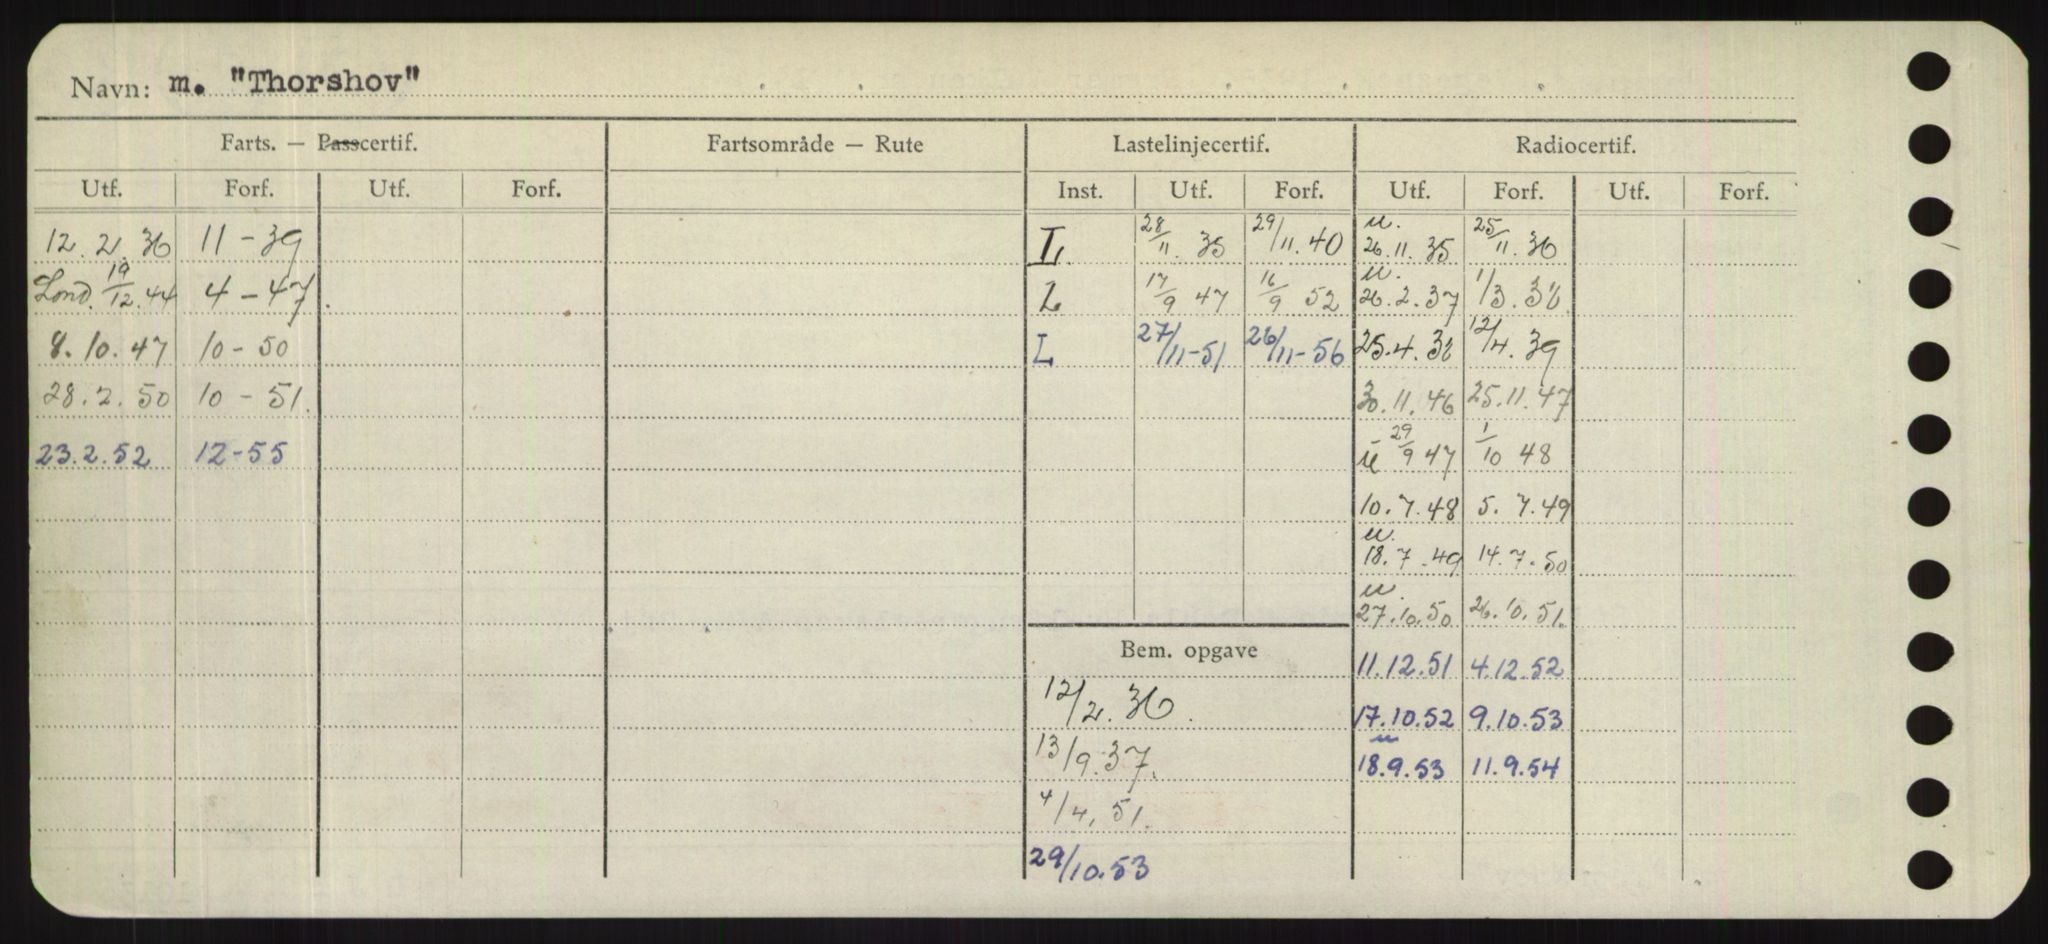 Navn: m. "Thorshov"
Farts. — Passcertif. Fartsområde — Rute Lastelinjecertif. Radiocertif.
Utf. Forf. Utf. Forf. Inst. Utf. Forf. Utf. Forf. Utf. Forf.
12. 2. 36 11 - 39 L 28/11. 35 29/11. 40 u. 26. 11. 35 25/11. 36
Lond. 19/12. 44 4 - 47. L 17/9 47 16/9 52 u. 26. 2. 37 1/3. 38
8. 10. 47 10 - 50 L 27/11-51 26/11-56 25. 4. 38 12/4. 39
28. 2. 50 10 - 51. 30. 11. 46 25. 11. 47
23. 2. 52 12-55 u 29/9 47 1/10 48
10. 7. 48 5. 7. 49
u. 18. 7. 49 14. 7. 50
u. 27. 10. 50 26. 10. 51.
Bem. opgave 11. 12. 51 4. 12. 52
12/2. 36. 17. 10. 52 9. 10. 53
13/9. 37. u 18. 9. 53 11. 9. 54
4/4, 51.
29/10. 53